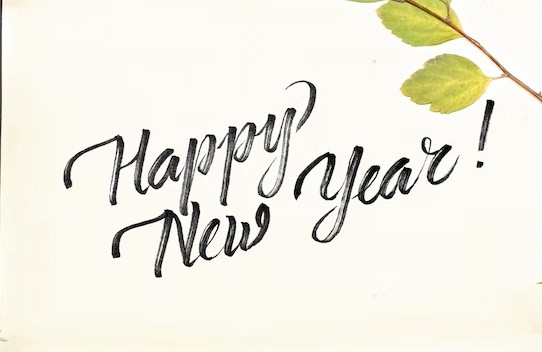 Happy
New Year!